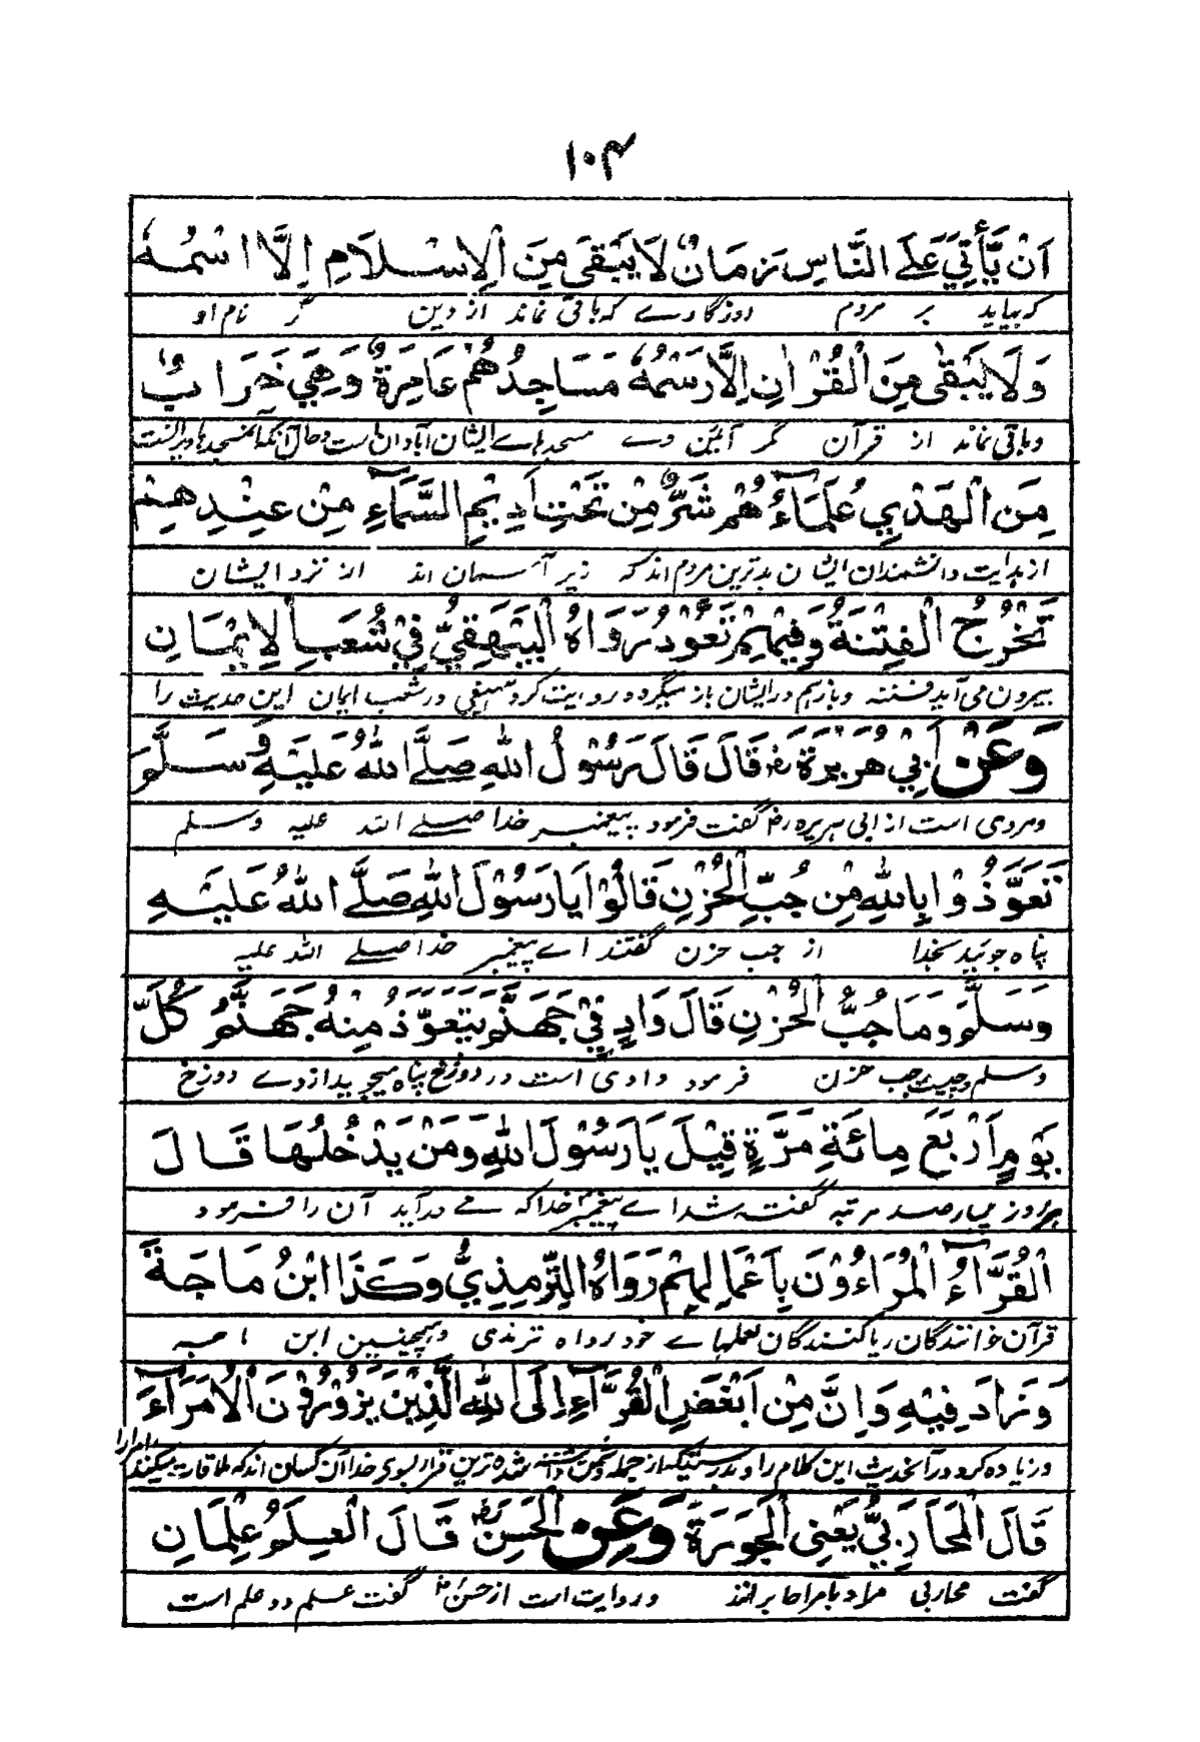 ۱۰۴
اَنْ يَّأْتِيَ عَلَى النَّاسِ زَمَانٌ لَا يَبْقٰى مِنَ الْاِسْلَامِ اِلَّا اسْمُهٗ
که بیاید بر مردم روزگارے که باقی نماند از دین مگر نام او
وَلَا يَبْقٰى مِنَ الْقُرْاٰنِ اِلَّا رَسْمُهٗ مَسَاجِدُهُمْ عَامِرَةٌ وَهِيَ خَرَابٌ
وباقی نماند از قرآن مگر آئین وے مسجدهاے ایشان آبادان است وحال آنکه
مِنَ الْهَدْيِ عُلَمَاءُهُمْ شَرٌّ مِنْ تَحْتِ اَدِيْمِ السَّمَآءِ مِنْ عِنْدِهِمْ
از هدایت دانشمندان ایشان بدترین مردم اند که زیر آسمان اند از نزد ایشان
تَخْرُجُ الْفِتْنَةُ وَفِيْهِمْ تَعُوْدُ رَوَاهُ الْبَيْهَقِيُّ فِيْ شُعَبِ الْاِيْمَانِ
بیرون می آید فتنه وبازهم در ایشان باز میگردد روایت کرد بیهقی در شعب ایمان این حدیث را
وَعَنْ اَبِيْ هُرَيْرَةَ رض قَالَ قَالَ رَسُوْلُ اللهِ صَلَّى اللهُ عَلَيْهِ وَسَلَّمَ
ومروی است از ابی هریره رض گفت فرمود پیغمبر خدا صلے الله علیه وسلم
تَعَوَّذُوْا بِاللهِ مِنْ جُبِّ الْحُزْنِ قَالُوْا يَا رَسُوْلَ اللهِ صَلَّى اللهُ عَلَيْهِ
پناه جوئید بخدا از جب حزن گفتند اے پیغمبر خدا صلے الله علیه
وَسَلَّمَ وَمَا جُبُّ الْحُزْنِ قَالَ وَادٍ فِيْ جَهَنَّمَ يَتَعَوَّذُ مِنْهُ جَهَنَّمُ كُلَّ
وسلم وچیست جب حزن فرمود وادی است در دوزخ پناه میجوید ازوے دوزخ
يَوْمٍ اَرْبَعَ مِائَةِ مَرَّةٍ قِيْلَ يَا رَسُوْلَ اللهِ وَمَنْ يَدْخُلُهَا قَالَ
هرروز چهارصد مرتبه گفته شد اے پیغمبر خدا که مے درآید آن را فرمود
الْقُرَّآءُ الْمُرَاءُوْنَ بِاَعْمَالِهِمْ رَوَاهُ التِّرْمِذِيُّ وَكَذَا ابْنُ مَاجَةَ
قرآن خوانندگان ریا کنندگان بعملهاے خود رواه ترمذی وهمچنین ابن ماجه
وَزَادَ فِيْهِ وَاِنَّ مِنْ اَبْغَضِ الْقُرَّآءِ اِلَى اللهِ الَّذِيْنَ يَزُوْرُوْنَ الْاُمَرَآءَ
وزیاده کرد در آنحدیث این کلام را وبدرستیکه از جمله دشمن داشته شده ترین قراء بسوی خدا آن کسان اند که ملاقات میکنند امرا را
قَالَ الْمُحَارِبِيُّ يَعْنِى الْجَوَرَةَ وَعَنِ الْحَسَنِ رض قَالَ الْعِلْمُ عِلْمَانِ
گفت محاربی مراد بامراجابرانند وروایت است از حسن رض گفت علم دو علم است